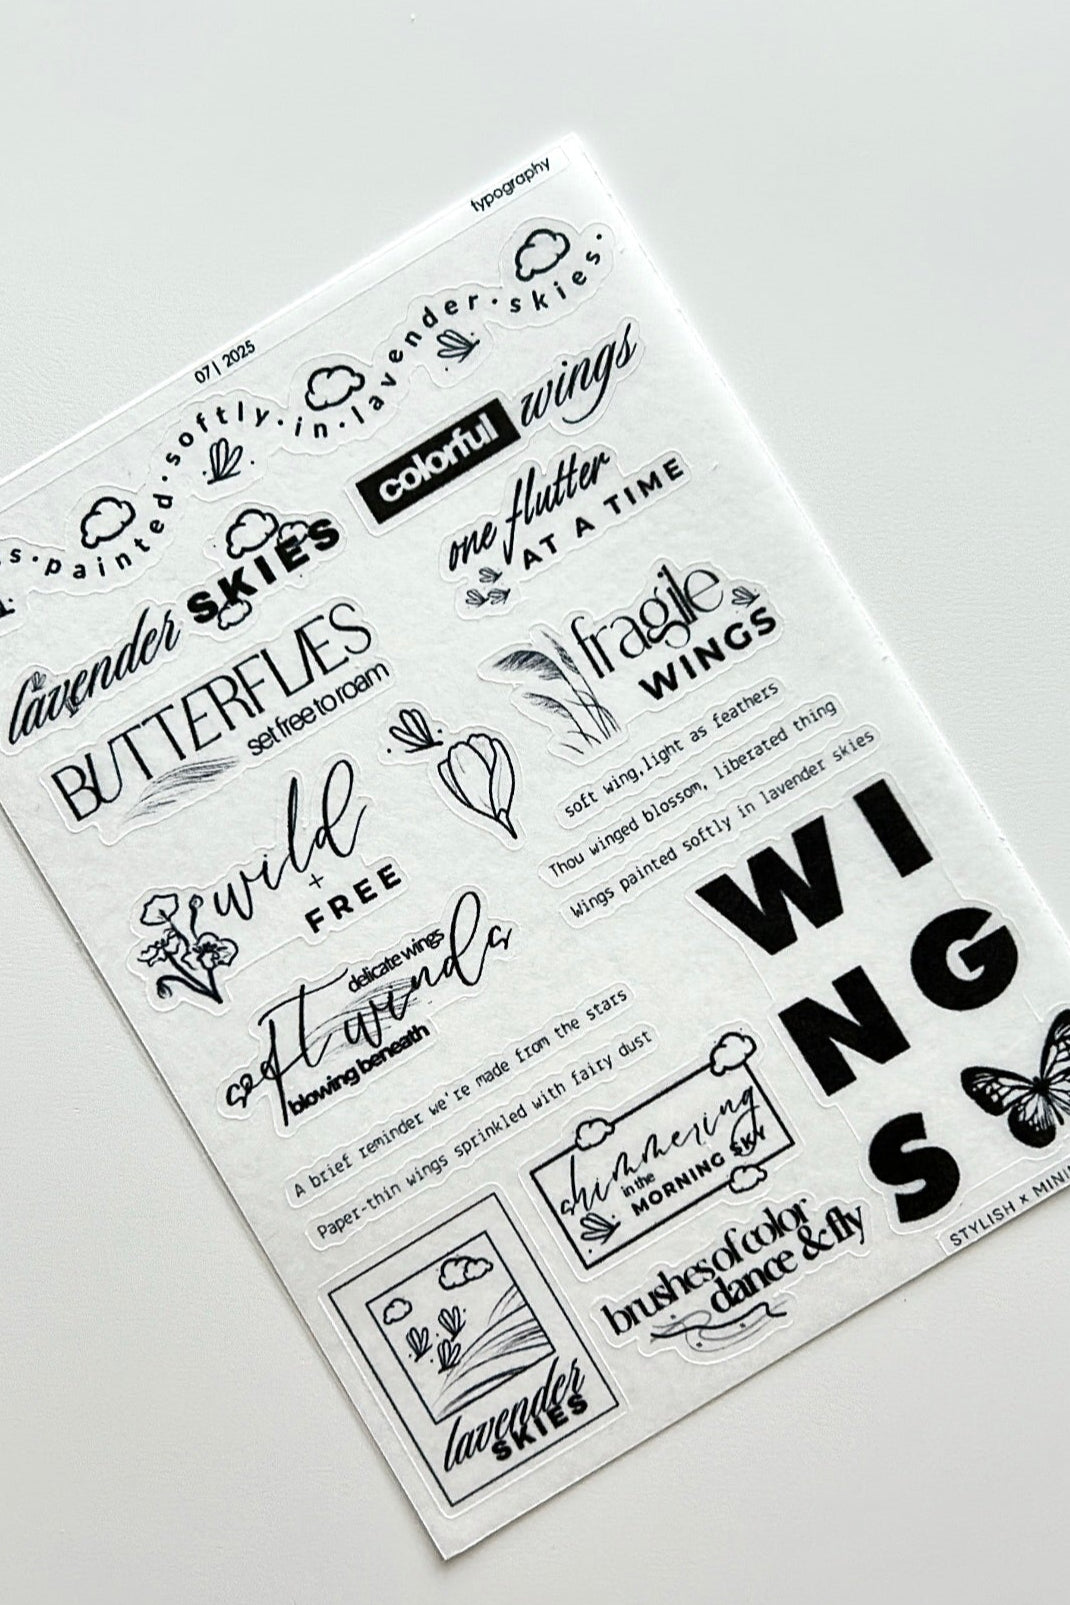 typography
07 | 2025
s·painted·softly·in·lavender·skies·
colorful wings
lavender SKIES
one flutter
AT A TIME
BUTTERFLIES
set free to roam
fragile
WINGS
soft wing, light as feathers
Thou winged blossom, liberated thing
Wings painted softly in lavender skies
wild
+
FREE
W I
N G
S
delicate wings
soft winds
blowing beneath
A brief reminder we're made from the stars
Paper-thin wings sprinkled with fairy dust
shimmering
in the
MORNING SKY
brushes of color
dance & fly
STYLISH x MINI
lavender
SKIES